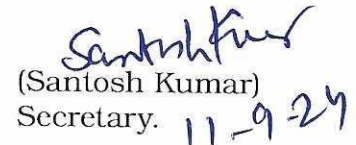 Santosh Kumar
(Santosh Kumar)
Secretary.
11-9-24